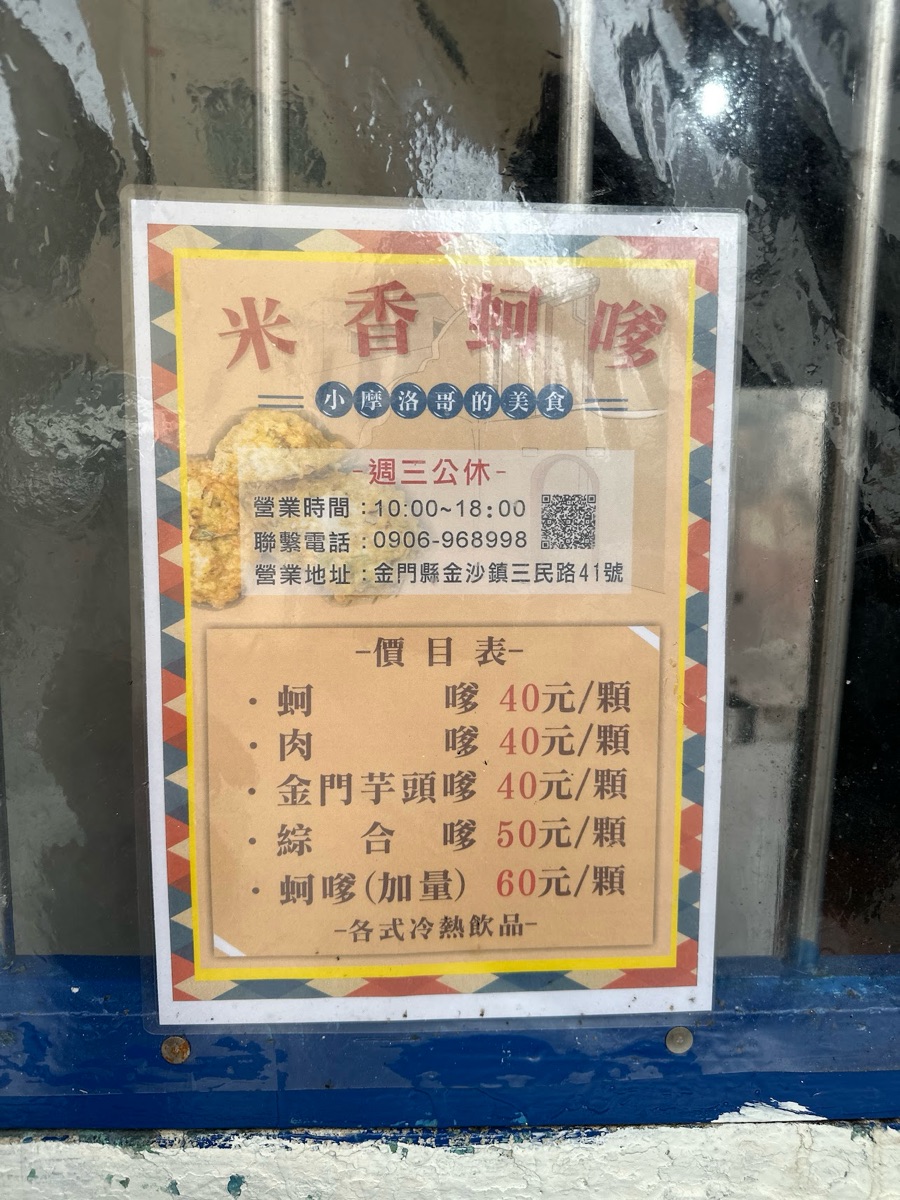 米香蚵嗲
小摩洛哥的美食
-週三公休-
營業時間:10:00~18:00
聯繫電話:0906-968998
營業地址:金門縣金沙鎮三民路41號
-價目表-
·蚵嗲 40元/顆
·肉嗲 40元/顆
·金門芋頭嗲 40元/顆
·綜合嗲 50元/顆
·蚵嗲(加量) 60元/顆
-各式冷熱飲品-